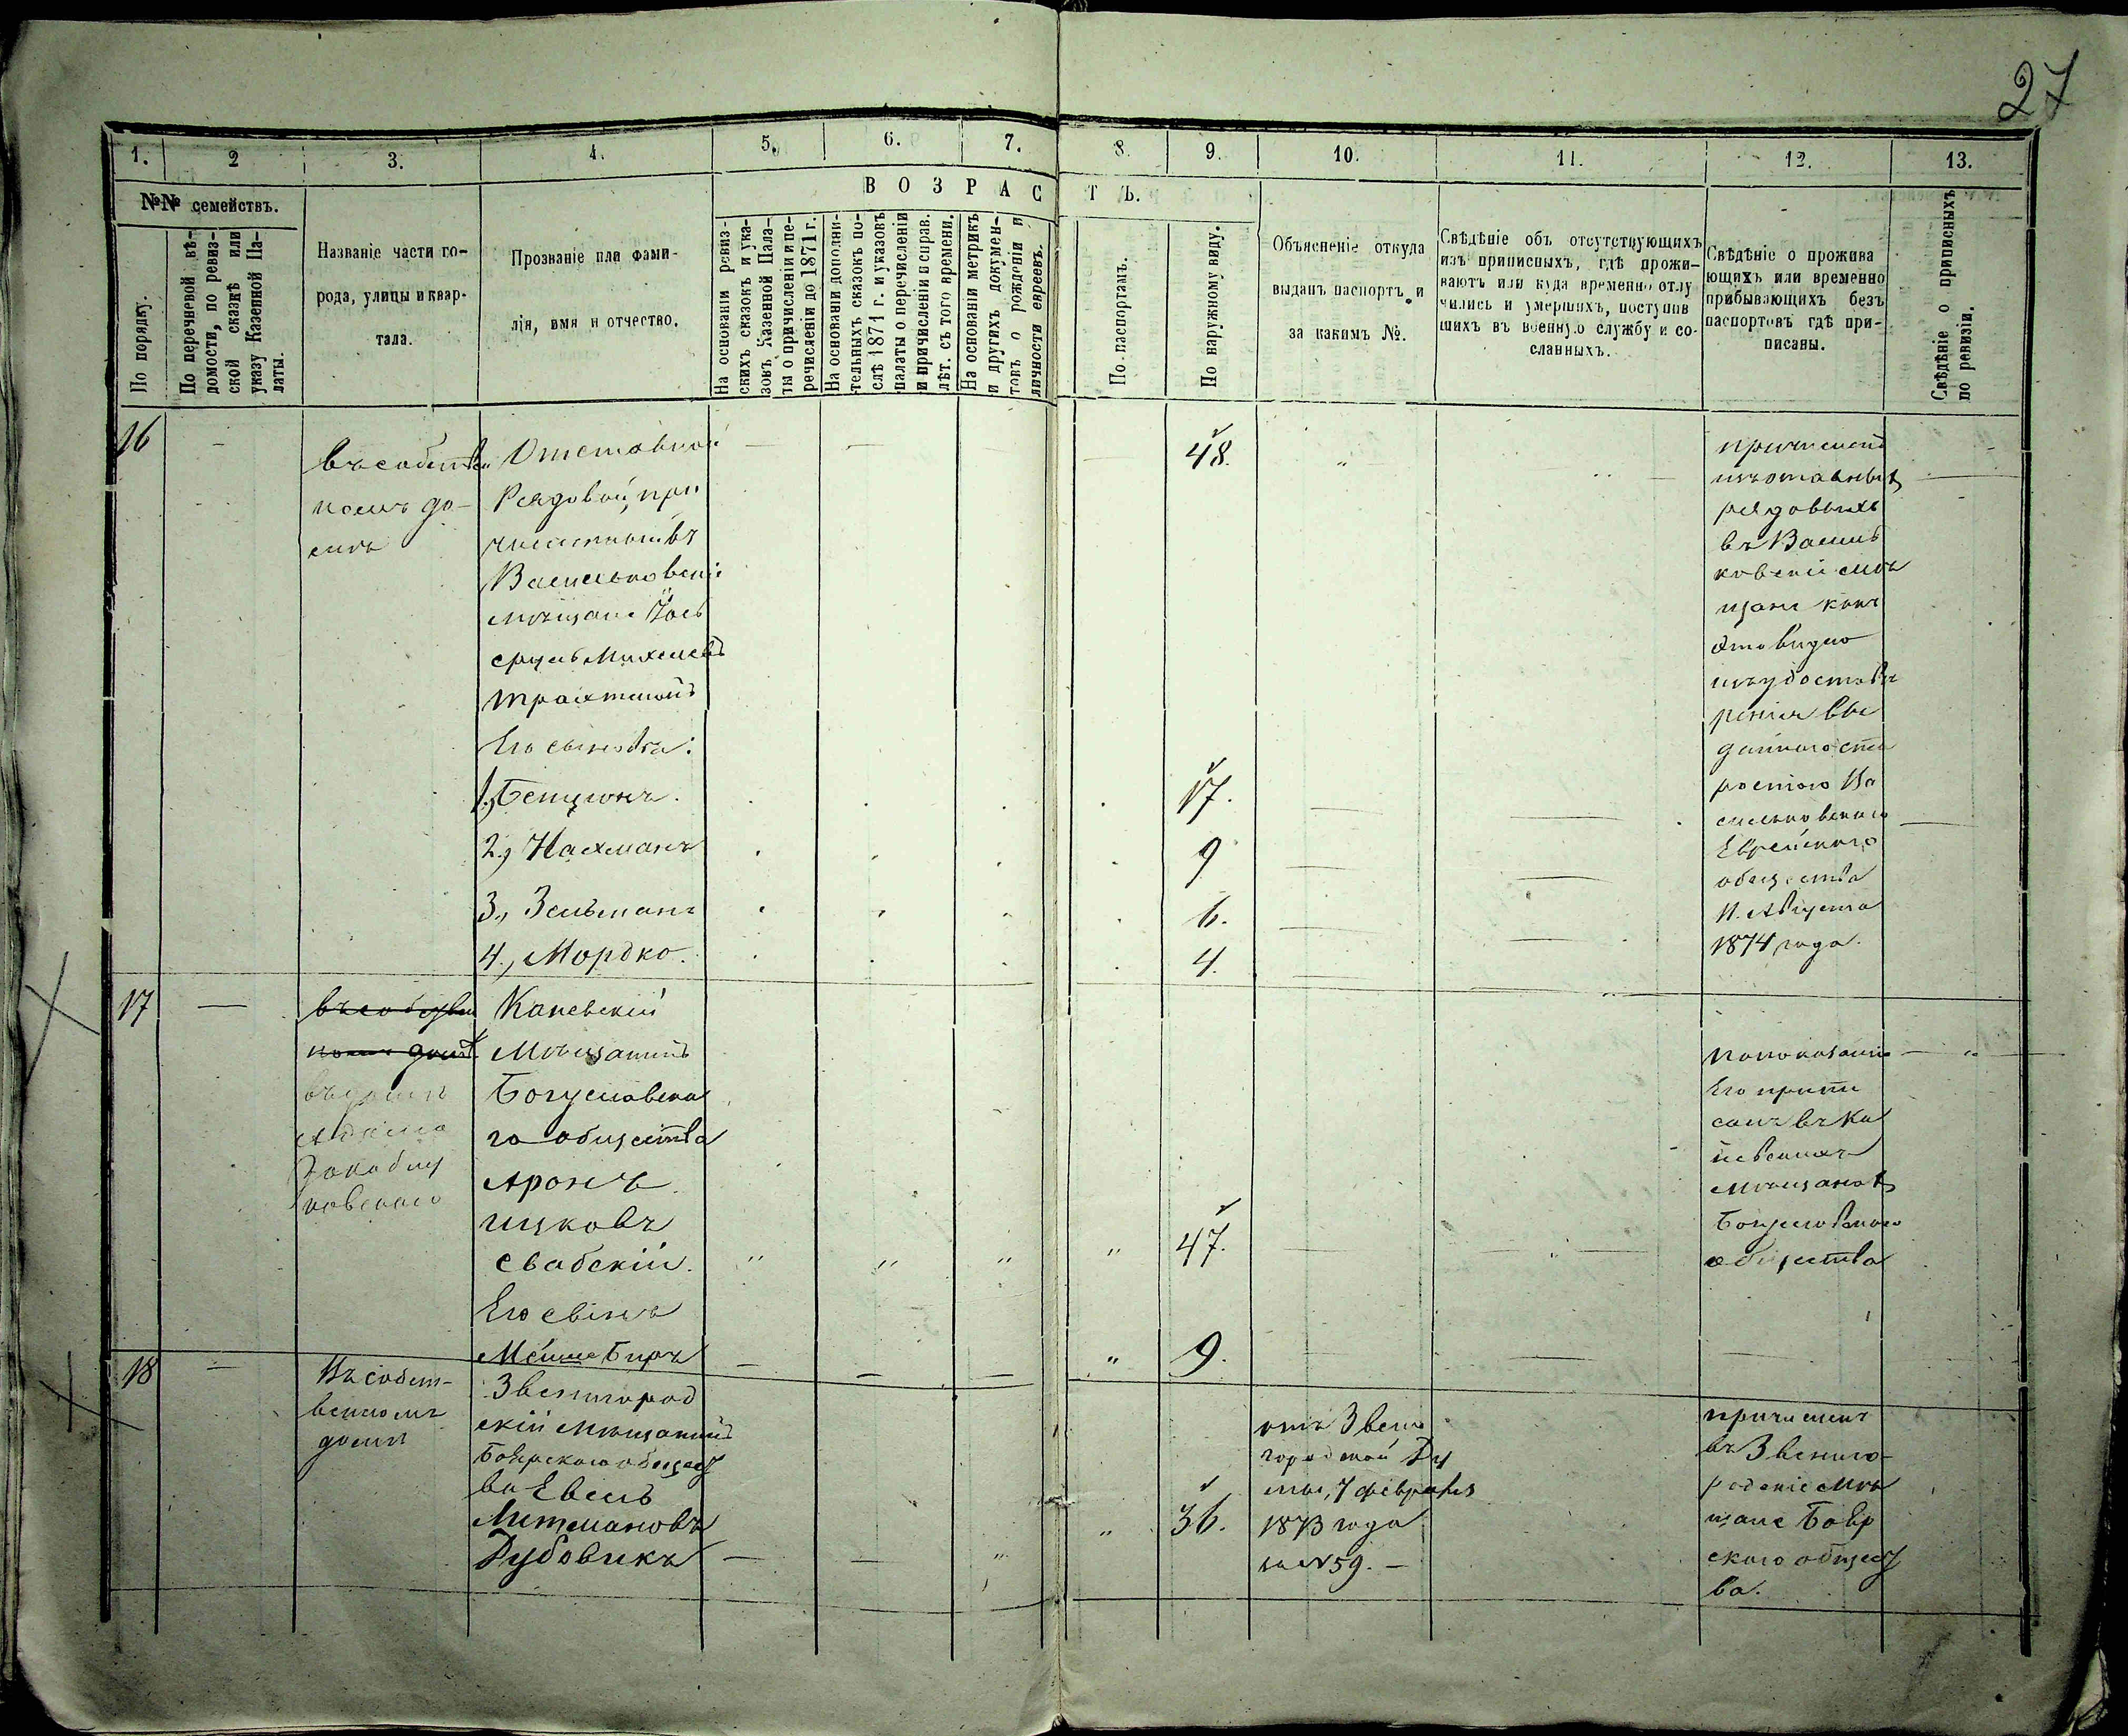 27
1. 2 3. 4. 5. 6. 7. 8. 9. 10. 11. 12. 13.
№№ семействъ.
ВОЗРАСТЪ.
По порядку.
По перечневой вѣ-
домости, по ревиз-
ской сказкѣ или
указу Казенной Па-
латы.
Названіе части го-
рода, улицы и квар-
тала.
Прозваніе или фами-
лія, имя и отчество.
На основаніи ревиз-
скихъ сказокъ и ука-
зовъ Казенной Пала-
ты о причисленіи и пе-
речисленіи до 1871 г.
На основаніи дополни-
тельныхъ сказокъ по-
слѣ 1871 г. и указовъ
палаты о перечисленіи
и причисленіи и справ.
лѣт. съ того времени.
На основаніи метрикъ
и другихъ докумен-
товъ о рожденіи и
личности евреевъ.
По паспортамъ.
По наружному виду.
Объясненіе откуда
выданъ паспортъ и
за какимъ №.
Свѣдѣніе объ отсутствующихъ
изъ приписныхъ, гдѣ прожи-
ваютъ или куда временно отлу
чились и умершихъ, поступив
шихъ въ военную службу и со-
сланныхъ.
Свѣдѣніе о прожива
ющихъ или временно
прибывающихъ безъ
паспортовъ гдѣ при-
писаны.
Свѣдѣніе о приписныхъ
по ревизіи.
16
въ собствен
номъ до-
мѣ
Отставной
Рядовой, при
численный въ
Васильковскіе
мѣщане Іось
Сруль Михелевъ
48.
Его сыновья:
1., Бенционъ. 17.
2., Нахманъ 9
3., Зельманъ 6.
4., Мордко. 4.
причисленъ
изъ отставныхъ
рядовыхъ
въ Василь
ковскіе мѣ
щане какъ
это видно
изъ удостовѣ
ренія вы
даннаго ста
ростою Ва
сильковскаго
Еврейскаго
общества
Августа
1874 года.
17
въ собствен
номъ домѣ
въ домѣ
Каневскій
Мѣщанинъ
Богуславска
го общества
Аронъ
Ицковъ
Свабскій. 47.
Его сынъ
Беръ 9.
по показанію
Его припи
санъ въ Ка
невскихъ
мѣщанахъ
Богуславскаго
общества
18
Въ собст-
венномъ
домѣ
Звенигород
скій Мѣщанинъ
Боярскаго общест
ва Евель
Литмановъ
Дубовикъ
36.
отъ Звени
городской Ду
мы, 7 февраля
1873 года
за №59. —
причисленъ
въ Звениго-
родскіе мѣ
щане Бояр
скаго общест
ва.